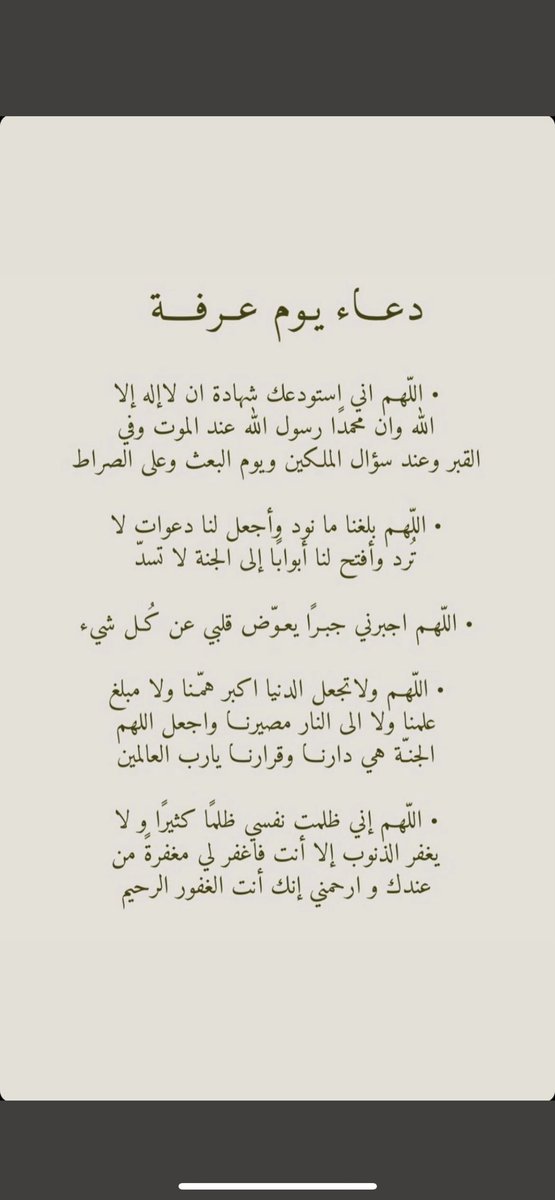 دعـــاء يـوم عـرفـــة
• اللّهـم اني استودعك شهادة ان لاإله إلا
الله وان محمدًا رسول الله عند الموت وفي
القبر وعند سؤال الملكين ويوم البعث وعلى الصراط
• اللّهـم بلغنا ما نود وأجعل لنا دعوات لا
تُرد وأفتح لنا أبوابًا إلى الجنة لا تسدّ
• اللّهـم اجبرني جبـرًا يعـوّض قلبي عن كُـل شيء
• اللّهـم ولاتجعل الدنيا اكبر همّـنا ولا مبلغ
علمنا ولا الى النار مصيرنـــا واجعل اللهم
الجنّـة هي دارنـــا وقرارنـــا يارب العالمين
• اللّهـم إني ظلمت نفسي ظلمًا كثيرًا و لا
يغفر الذنوب إلا أنت فاغفر لي مغفرةً من
عندك و ارحمني إنك أنت الغفور الرحيم